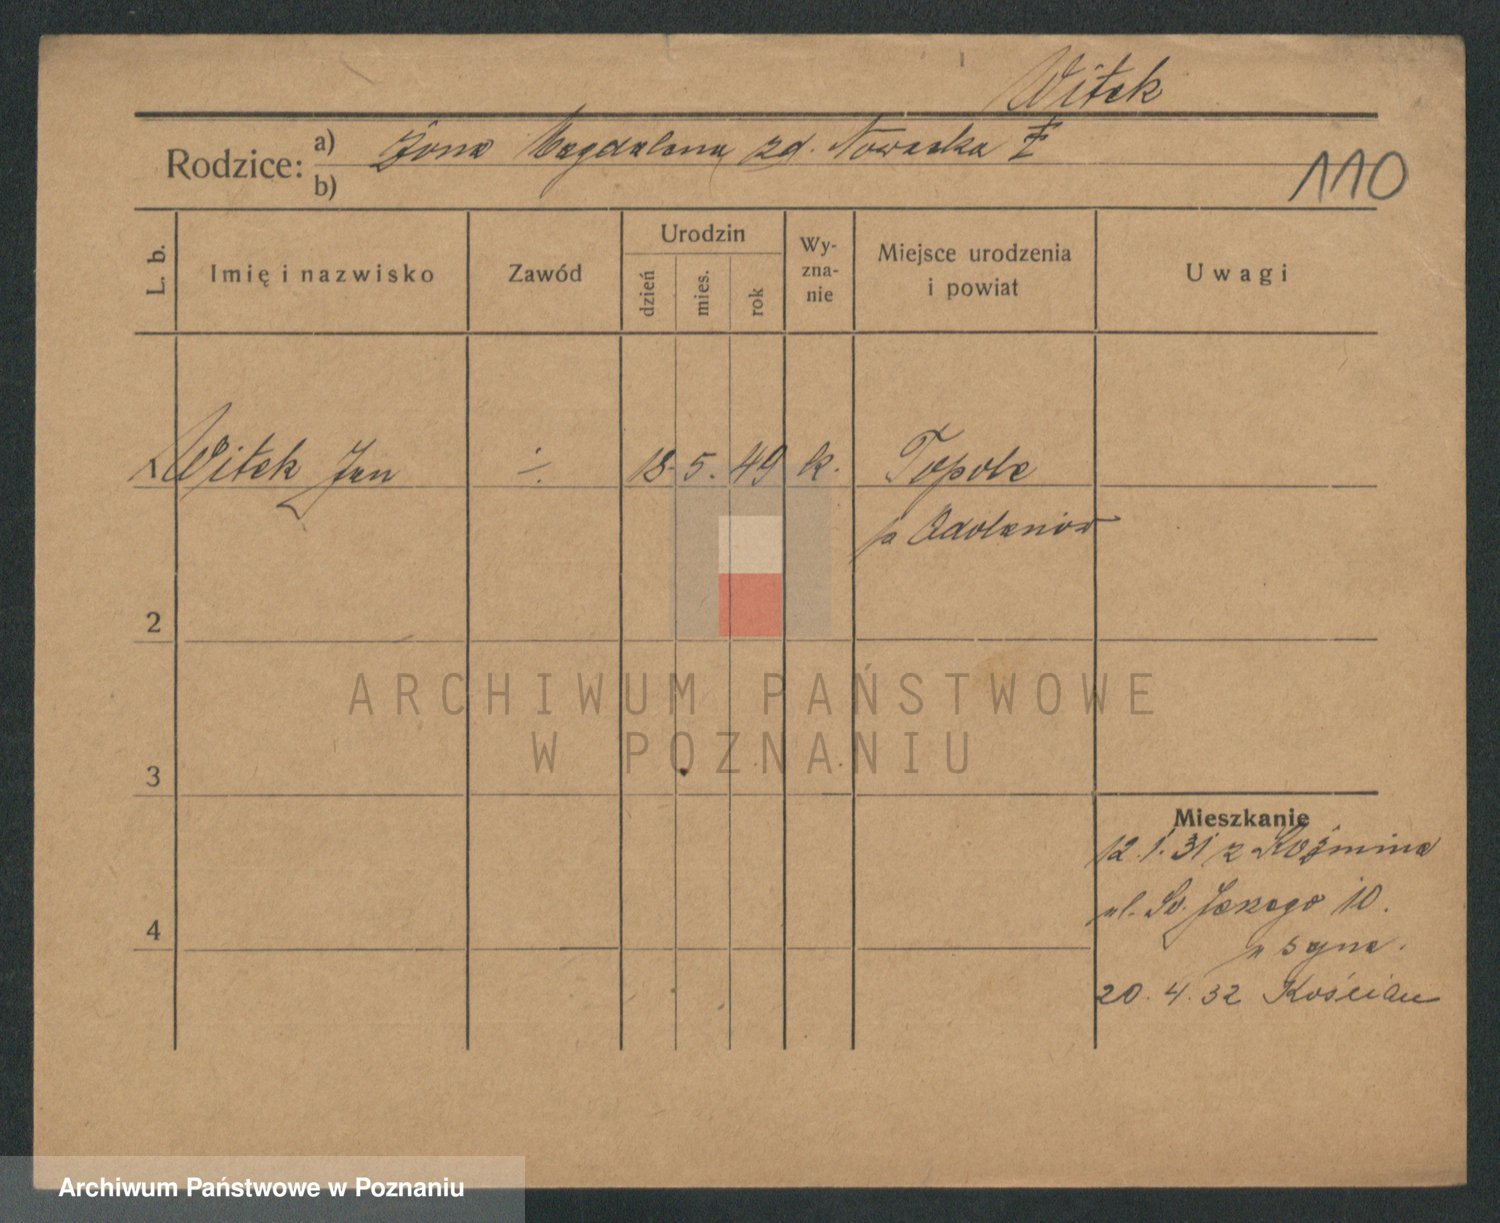 Witek
Rodzice: a) Żona Magdalena zd. Nowacka
b)
110
L. b.
Imię i nazwisko
Zawód
Urodzin
dzień
mies.
rok
Wy-
zna-
nie
Miejsce urodzenia
i powiat
Uwagi
1 Witek Jan ÷ 18. 5. 49 k. Topola
p. Odolanów
2
3
4
Mieszkanie
12.1.31 z Koźmina
ul. Św. Jerzego 10.
u syna.
20.4.32 Kościan
ARCHIWUM PAŃSTWOWE
W POZNANIU
Archiwum Państwowe w Poznaniu